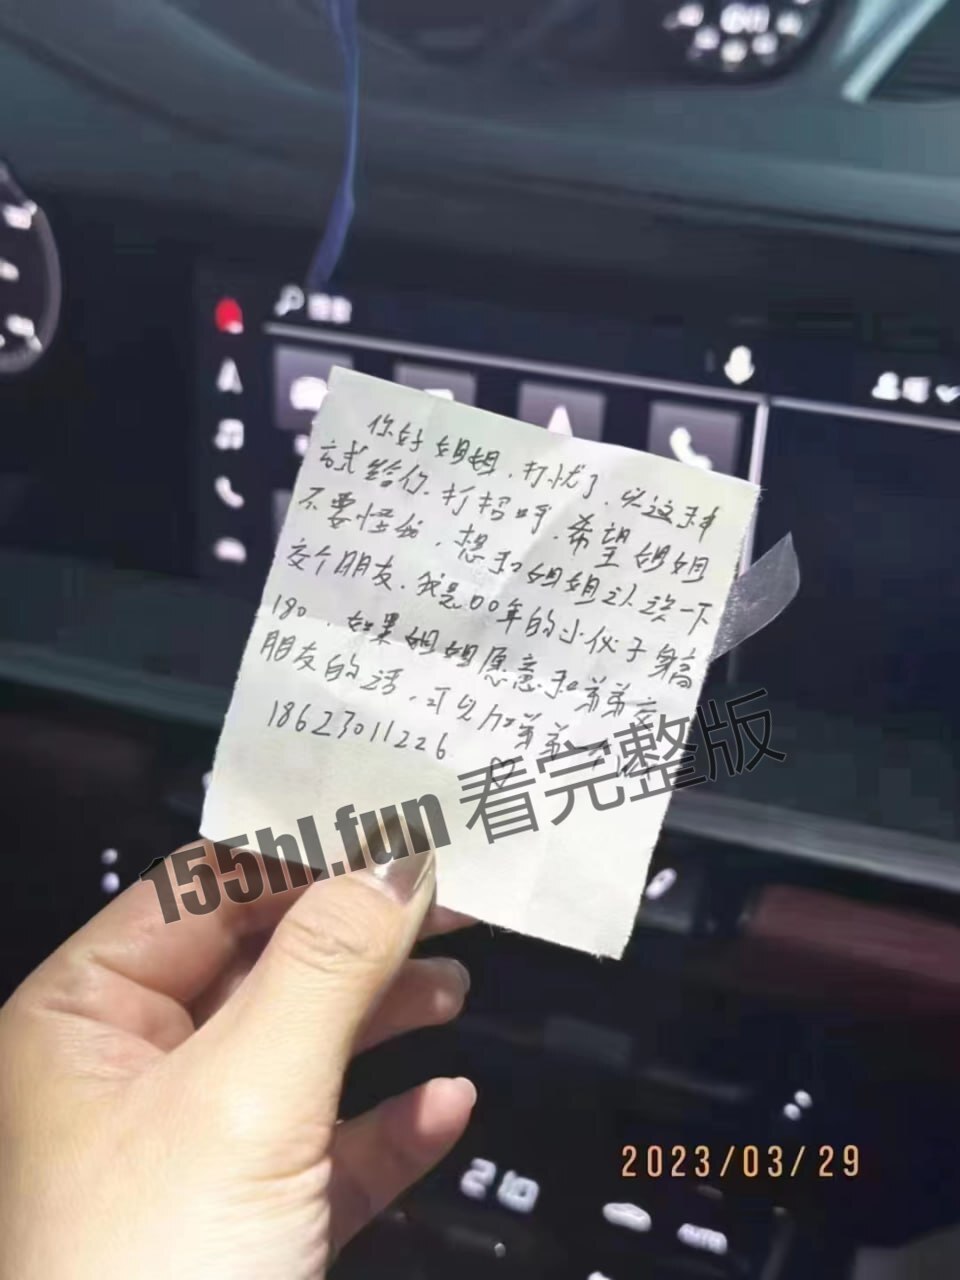 你好姐姐，打扰了，以这种
方式给你打招呼，希望姐姐
不要怪我，想和姐姐认识一下
交个朋友，我是00年的小伙子身高
180，如果姐姐愿意和弟弟交
朋友的话，可以加弟弟一个
18623011226 ♡
155hl.fun 看完整版
2023/03/29
210
AUTO